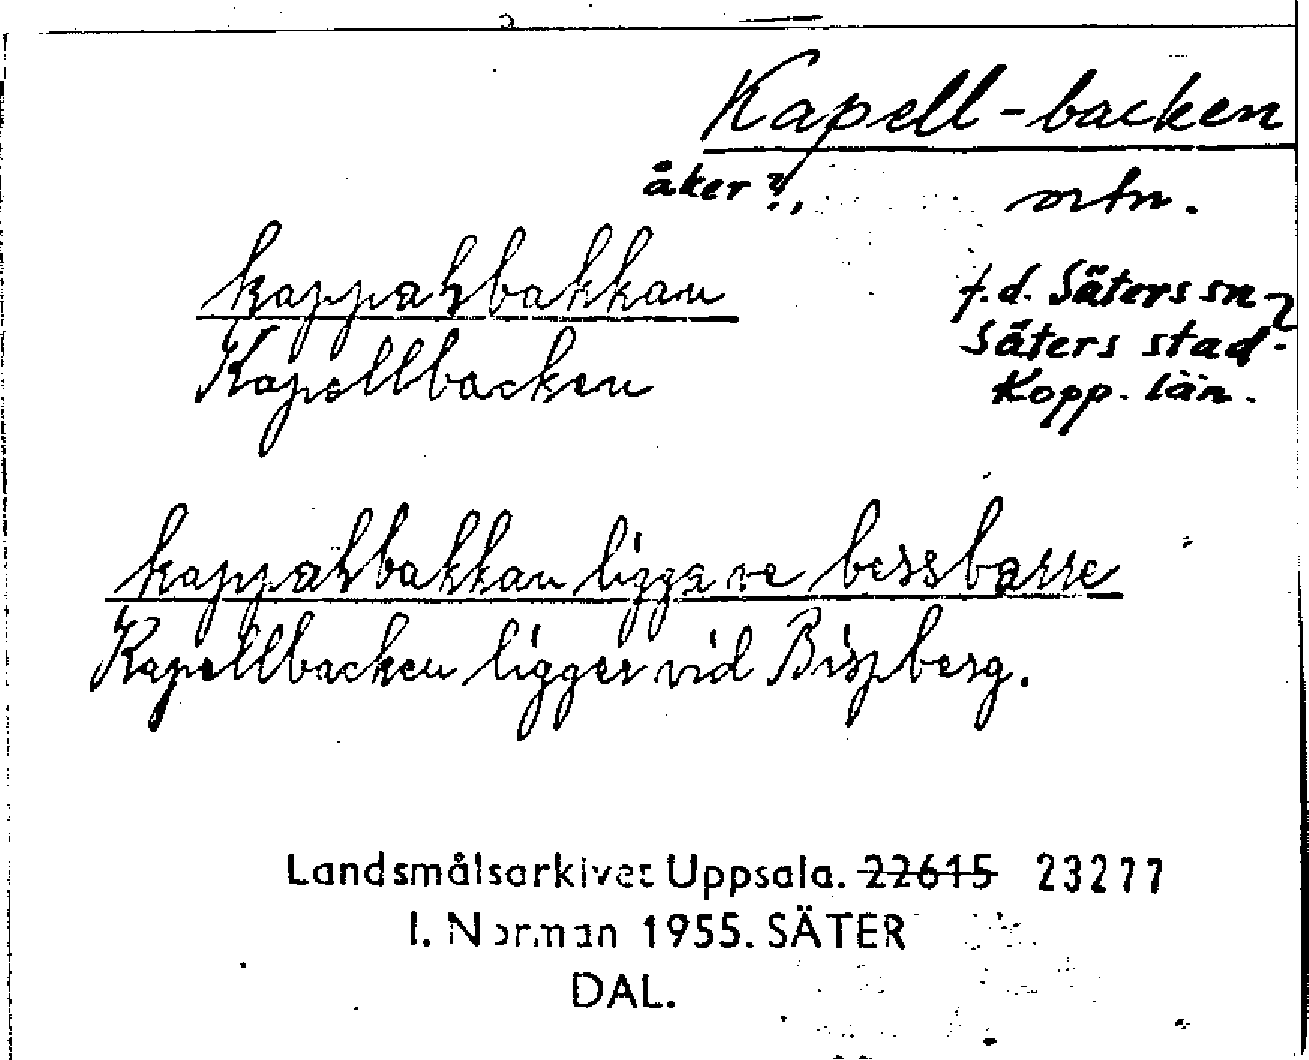 Kapell-backen
åker?, ortn.
kappalsbakkan
f.d. Säters sn
Kapellbacken
Säters stad
Kopp. län.
kappalsbakkan ligga ve bessbarre
Kapellbacken ligger vid Bispberg.
Landsmålsarkivet Uppsala. 22615 23277
I. Norman 1955. SÄTER
DAL.